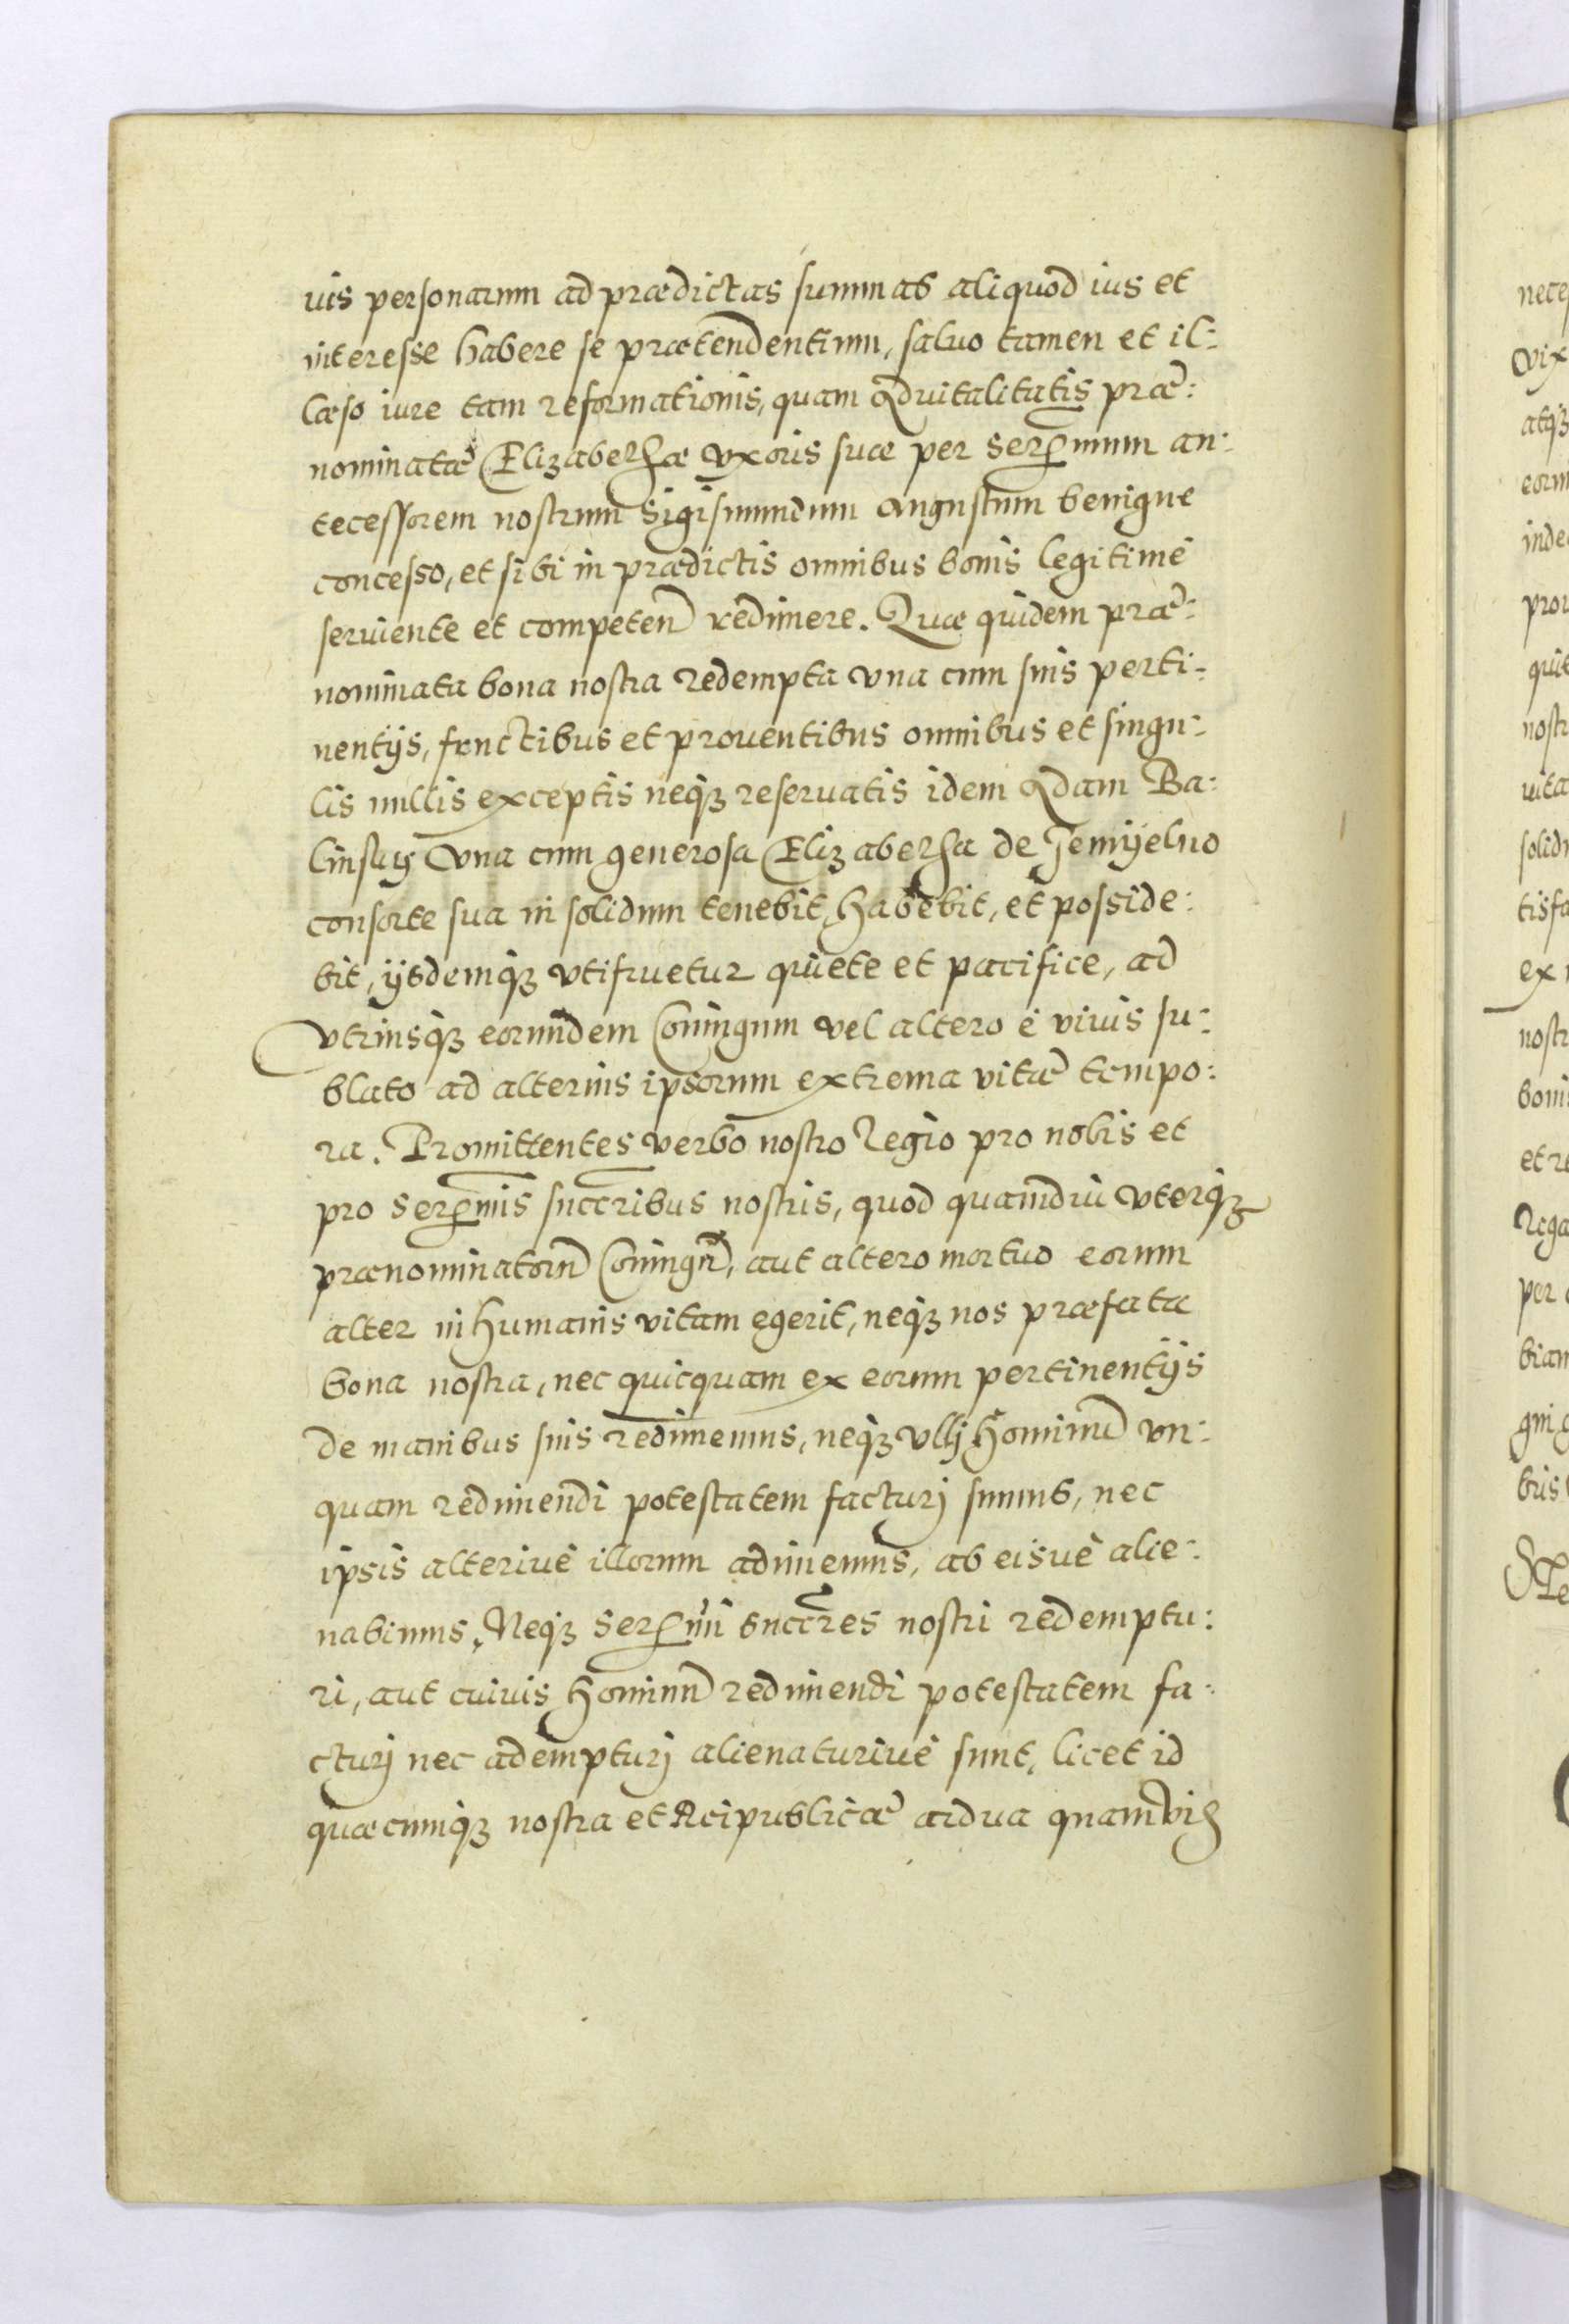 uis personarum ad prædictas summas aliquod ius et
interesse habere se prætendentium, saluo tamen et il:
læso iure tam reformationis, quam Aduitalitatis præ:
nominatæ Elizabethæ vxoris suæ per Serenmum an:
tecessorem nostrum Sigismundum Augustum benigne
concesso, et sibi in prædictis omnibus bonis legitimè
seruiente et competen redimere. Quæ quidem præ:
nominata bona nostra redempta vna cum suis perti:
nentijs, fructibus et prouentibus omnibus et singu:
lis nullis exceptis neq3 reseruatis idem Adam Ba:
linskij Vna cum generosa Elizabetha de Jemÿelno
consorte sua in solidum tenebit, habebit, et posside:
bit, ijsdemq3 vtifruetur quiete et pacifice, ad
vtriusq3 eorundem Coniugum vel altero è viuis su:
blato ad alterius ipsorum extrema vitæ tempo:
ra. Promittentes verbo nostro Regio pro nobis et
pro Serenmis succribus nostris, quod quamdiu vterq3
prænominatorum Coniugum, aut altero mortuo eorum
alter in humanis vitam egerit, neq3 nos præfata
bona nostra, nec quicquam ex eorum pertinentijs
de manibus suis redimemus, neq3 vllj hominum vn:
quam redimendi potestatem facturj sumus, nec
ipsis alteriuè illorum adimemus, ab eisuè alie:
nabimus, Neq3 Serenmi succres nostri redemptu:
ri, aut cuiuis hominum redimendi potestatem fa:
cturj nec adempturj alienaturiuè sunt, licet id
quæcumq3 nostra et Reipublicæ ardua quamvis